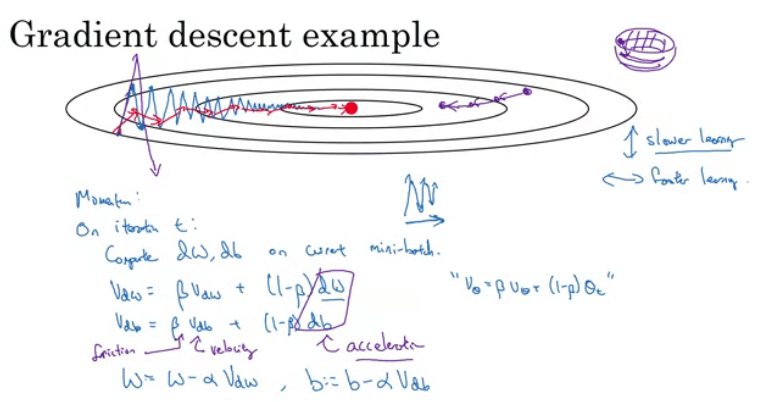 Gradient descent example
↕ slower learning
↔ faster learning.
Momentum:
On iteration t:
Compute dW, db on current mini-batch.
V_dW = β V_dW + (1-β) dW
"V_θ = β V_θ + (1-β) θ_t"
V_db = β V_db + (1-β) db
friction velocity acceleration
W = W - α V_dW , b := b - α V_db